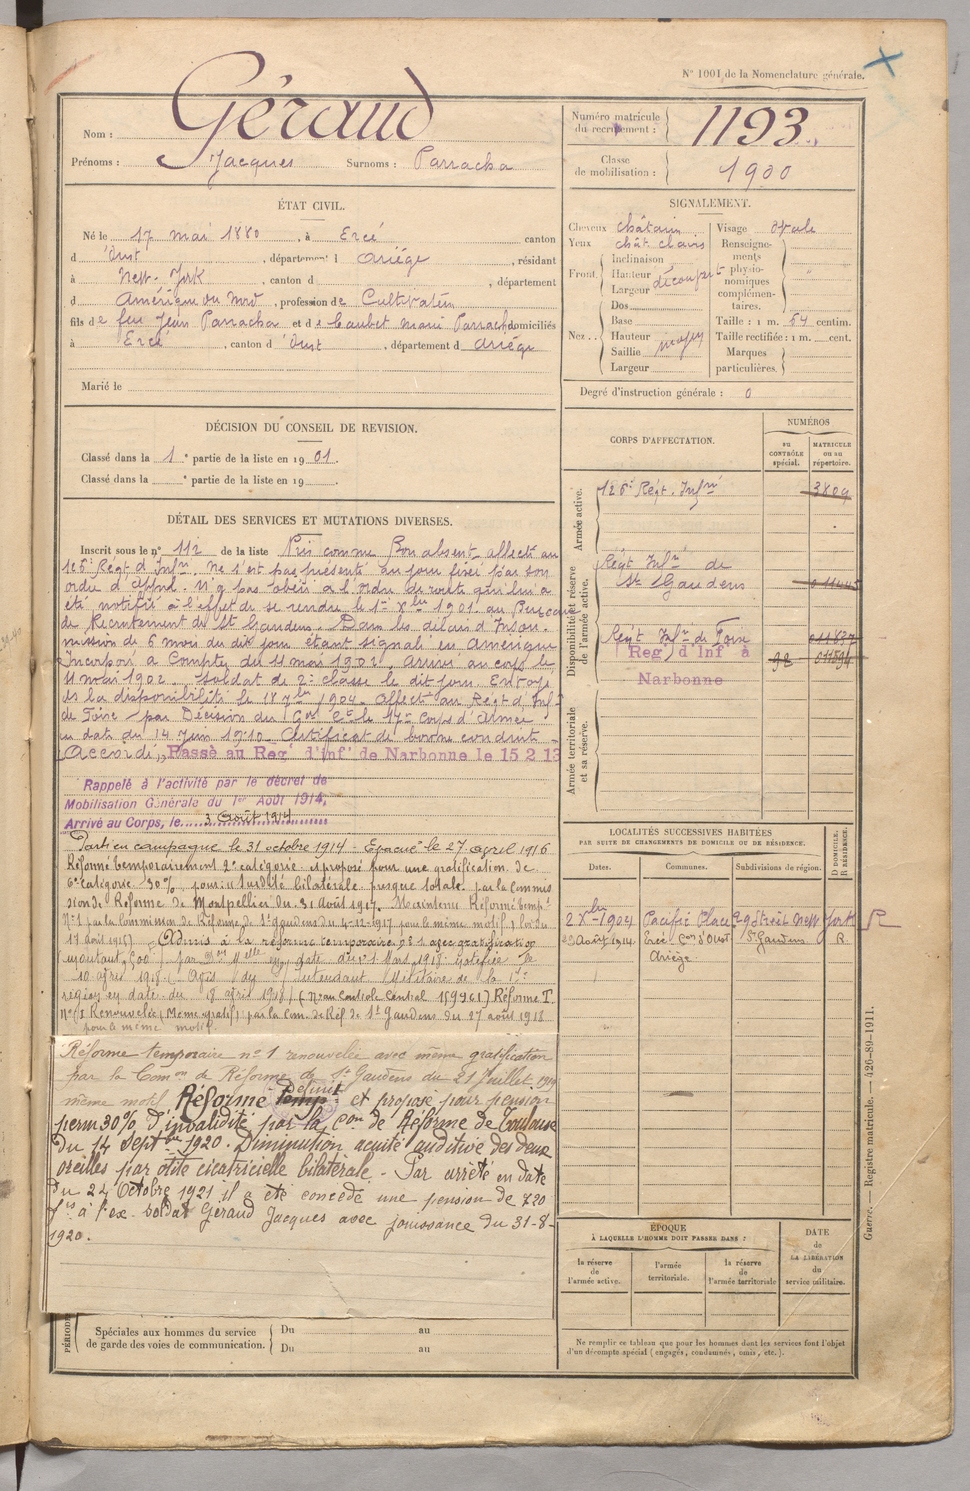 N° 1001 de la Nomenclature générale.
Nom : Géraud
Prénoms : Jacques Surnoms : Parracha
Numéro matricule du recrutement : 1193
Classe de mobilisation : 1900
ÉTAT CIVIL.
Né le 17 mai 1880, à Ercé canton
d'Oust, département d Ariège, résidant
à New-York, canton d , département
d Amérique du Nord, profession de Cultivateur
fils de feu Jean Parracha et de Caubet Marie Parracha domiciliés
à Ercé, canton d'Oust, département d Ariège
Marié le
SIGNALEMENT.
Cheveux châtain
Yeux chât clairs
Front Inclinaison
Hauteur découvert
Largeur
Nez Dos
Base
Hauteur moyen
Saillie
Largeur
Visage Ovale
Renseignements physionomiques complémentaires. "
Taille : 1 m. 64 centim.
Taille rectifiée : 1 m. cent.
Marques particulières.
Degré d'instruction générale : 0
DÉCISION DU CONSEIL DE REVISION.
Classé dans la 1e partie de la liste en 1901.
Classé dans la e partie de la liste en 19 .
DÉTAIL DES SERVICES ET MUTATIONS DIVERSES.
Inscrit sous le n° 112 de la liste Pris comme Bon absent, affecté au
126e Régt d'Infrie, ne s'est pas présenté au jour fixé par son
ordre d'appel. N'a pas obéi à l'ordre de route qui lui a
été notifié à l'effet de se rendre le 1er Xbre 1901 au Bureau
de Recrutement de St Gaudens. Dans les délais d'Insou-
mission de 6 mois du dit jour étant signalé en Amérique
Incorporé à Compter du 11 mars 1902. arrivé au corps le
11 mars 1902. Soldat de 2e classe le dit jour. Envoyé
ds la disponibilité le 18 7bre 1904. Affecté au Régt d'Infie
de Foix par Décision du Gal Ct le 17e Corps d'Armée
en date du 14 Juin 1910. Certificat de bonne conduite
Accordé. Passé au Reg' d'inf' de Narbonne le 15 2 13
Rappelé à l'activité par le décret de
Mobilisation Générale du 1er Août 1914,
Arrivé au Corps, le 3 Août 1914
Parti en campagne le 31 octobre 1914 - Evacué le 27 april 1916
Réformé temporairement 2e catégorie et proposé pour une gratification de
6e catégorie 30%, pour : "Surdité bilatérale presque totale" par la Commis
sion de Réforme de Montpellier du 31 août 1917. Maintenu Réformé temp.
N° 1 par la Commission de Réforme de St Gaudens du 4-12-1917 pour le même motif (loi du
17 août 1915) Admis à la réforme temporaire n° 1 avec gratification
montant 500 f par Don Melle en date du 1 Mars 1918 notifiée le
10 april 1918. Avis du s/intendant Militaire de la 17e
région en date du 18 april 1918 (N° au Controle Central 159961) Réformé T.
N° 1 Renouvelée (Même gratif) par la Com. de Réf. de St Gaudens du 27 août 1918
pour le même motif
Réforme temporaire n° 1 renouvelée avec même gratification
par la Comon de Réforme de St Gaudens du 21 Juillet 1919
même motif. Réformé définit Temp.t et proposé pour pension
perm 30% d'invalidité par la Con de Réforme de Toulouse
du 14 Septbre 1920. Diminution acuité auditive des deux
oreilles par otite cicatricielle bilatérale. - Par arrêté en date
du 24 Octobre 1921 il a été concédé une pension de 720
frs à l'ex. soldat Géraud Jacques avec jouissance du 31-8-
1920.
PÉRIODES
Spéciales aux hommes du service de garde des voies de communication. Du au
Du au
CORPS D'AFFECTATION.
NUMÉROS
au CONTRÔLE spécial.
MATRICULE ou au répertoire.
Armée active.
126e Régt. Infrie 3809
Disponibilité et réserve de l'armée active.
Régt Infrie de
St Gaudens 011445
Régt Infie de Foix 011837
Reg' d'Inf' à 98 011894
Narbonne
Armée territoriale et sa réserve.
LOCALITÉS SUCCESSIVES HABITÉES
PAR SUITE DE CHANGEMENTS DE DOMICILE OU DE RÉSIDENCE.
Dates. Communes. Subdivisions de région. D. DOMICILE. R. RÉSIDENCE.
2 Xbre 1904 Pacific Place 29 Street New York R
Août 1914 Ercé Con d'Oust St Gaudens R.
Ariège
ÉPOQUE
À LAQUELLE L'HOMME DOIT PASSER DANS :
la réserve de l'armée active.
l'armée territoriale.
la réserve de l'armée territoriale
DATE de LA LIBÉRATION du service militaire.
Ne remplir ce tableau que pour les hommes dont les services font l'objet
d'un décompte spécial (engagés, condamnés, omis, etc.).
Guerre. — Registre matricule. — 426-89-1911.